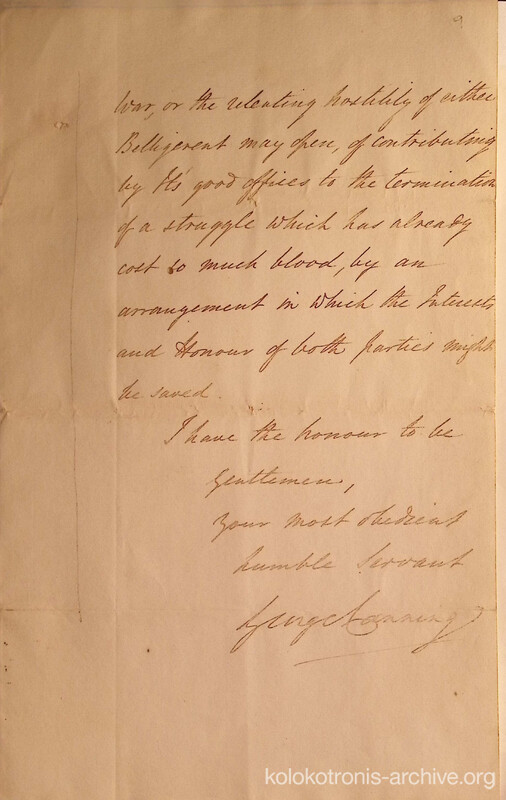 9
War, or the relenting hostility of either
Belligerent may open, of contributing
by its good offices to the termination
of a struggle which has already
cost so much blood, by an
arrangement in which the Interests
and Honour of both parties might
be saved.
I have the honour to be
Gentlemen,
Your most obedient
humble Servant
George Canning
kolokotronis-archive.org